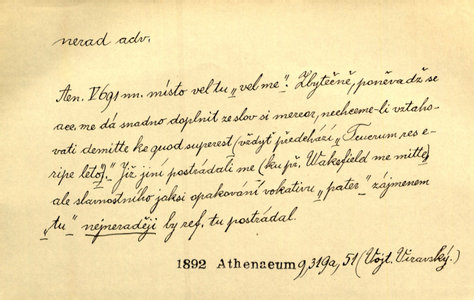 nerad adv.
Aen. V 691 nn. místo vel tu „vel me“. Zbytečně, poněvadž se
acc. me dá snadno doplnit ze slov si mereor, nechceme-li vztaho-
vati demitte ke quod superest (vždyť předchází „Teucrum res e-
ripe leto)." Již jiní postrádali me (ku př. Wakefield me mitte)
ale slavnostního jaksi opakování vokativu „pater“ zájmenem
„tu“ nejneraději by ref. tu postrádal.
1892 Athenaeum 9, 319a, 51 (Vojt. Viravský.)